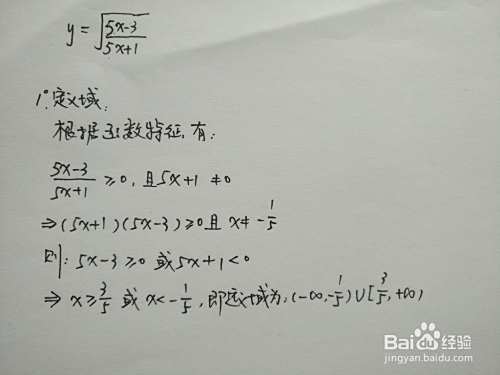 y = √((5x-3)/(5x+1))
1°.定义域:
根据函数特征,有:
(5x-3)/(5x+1) ≥0,且5x+1 ≠0
⇒(5x+1)(5x-3)≥0且 x≠-1/5
则:5x-3≥0 或5x+1<0
⇒ x≥3/5 或 x<-1/5,即定义域为:(-∞,-1/5)∪[3/5,+∞)
Baidu经验
jingyan.baidu.com